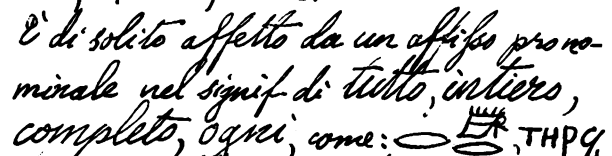 È di solito affetto da un affisso prono-
minale nel signif di tutto, intiero,
completo, ogni, come: , THPϤ,